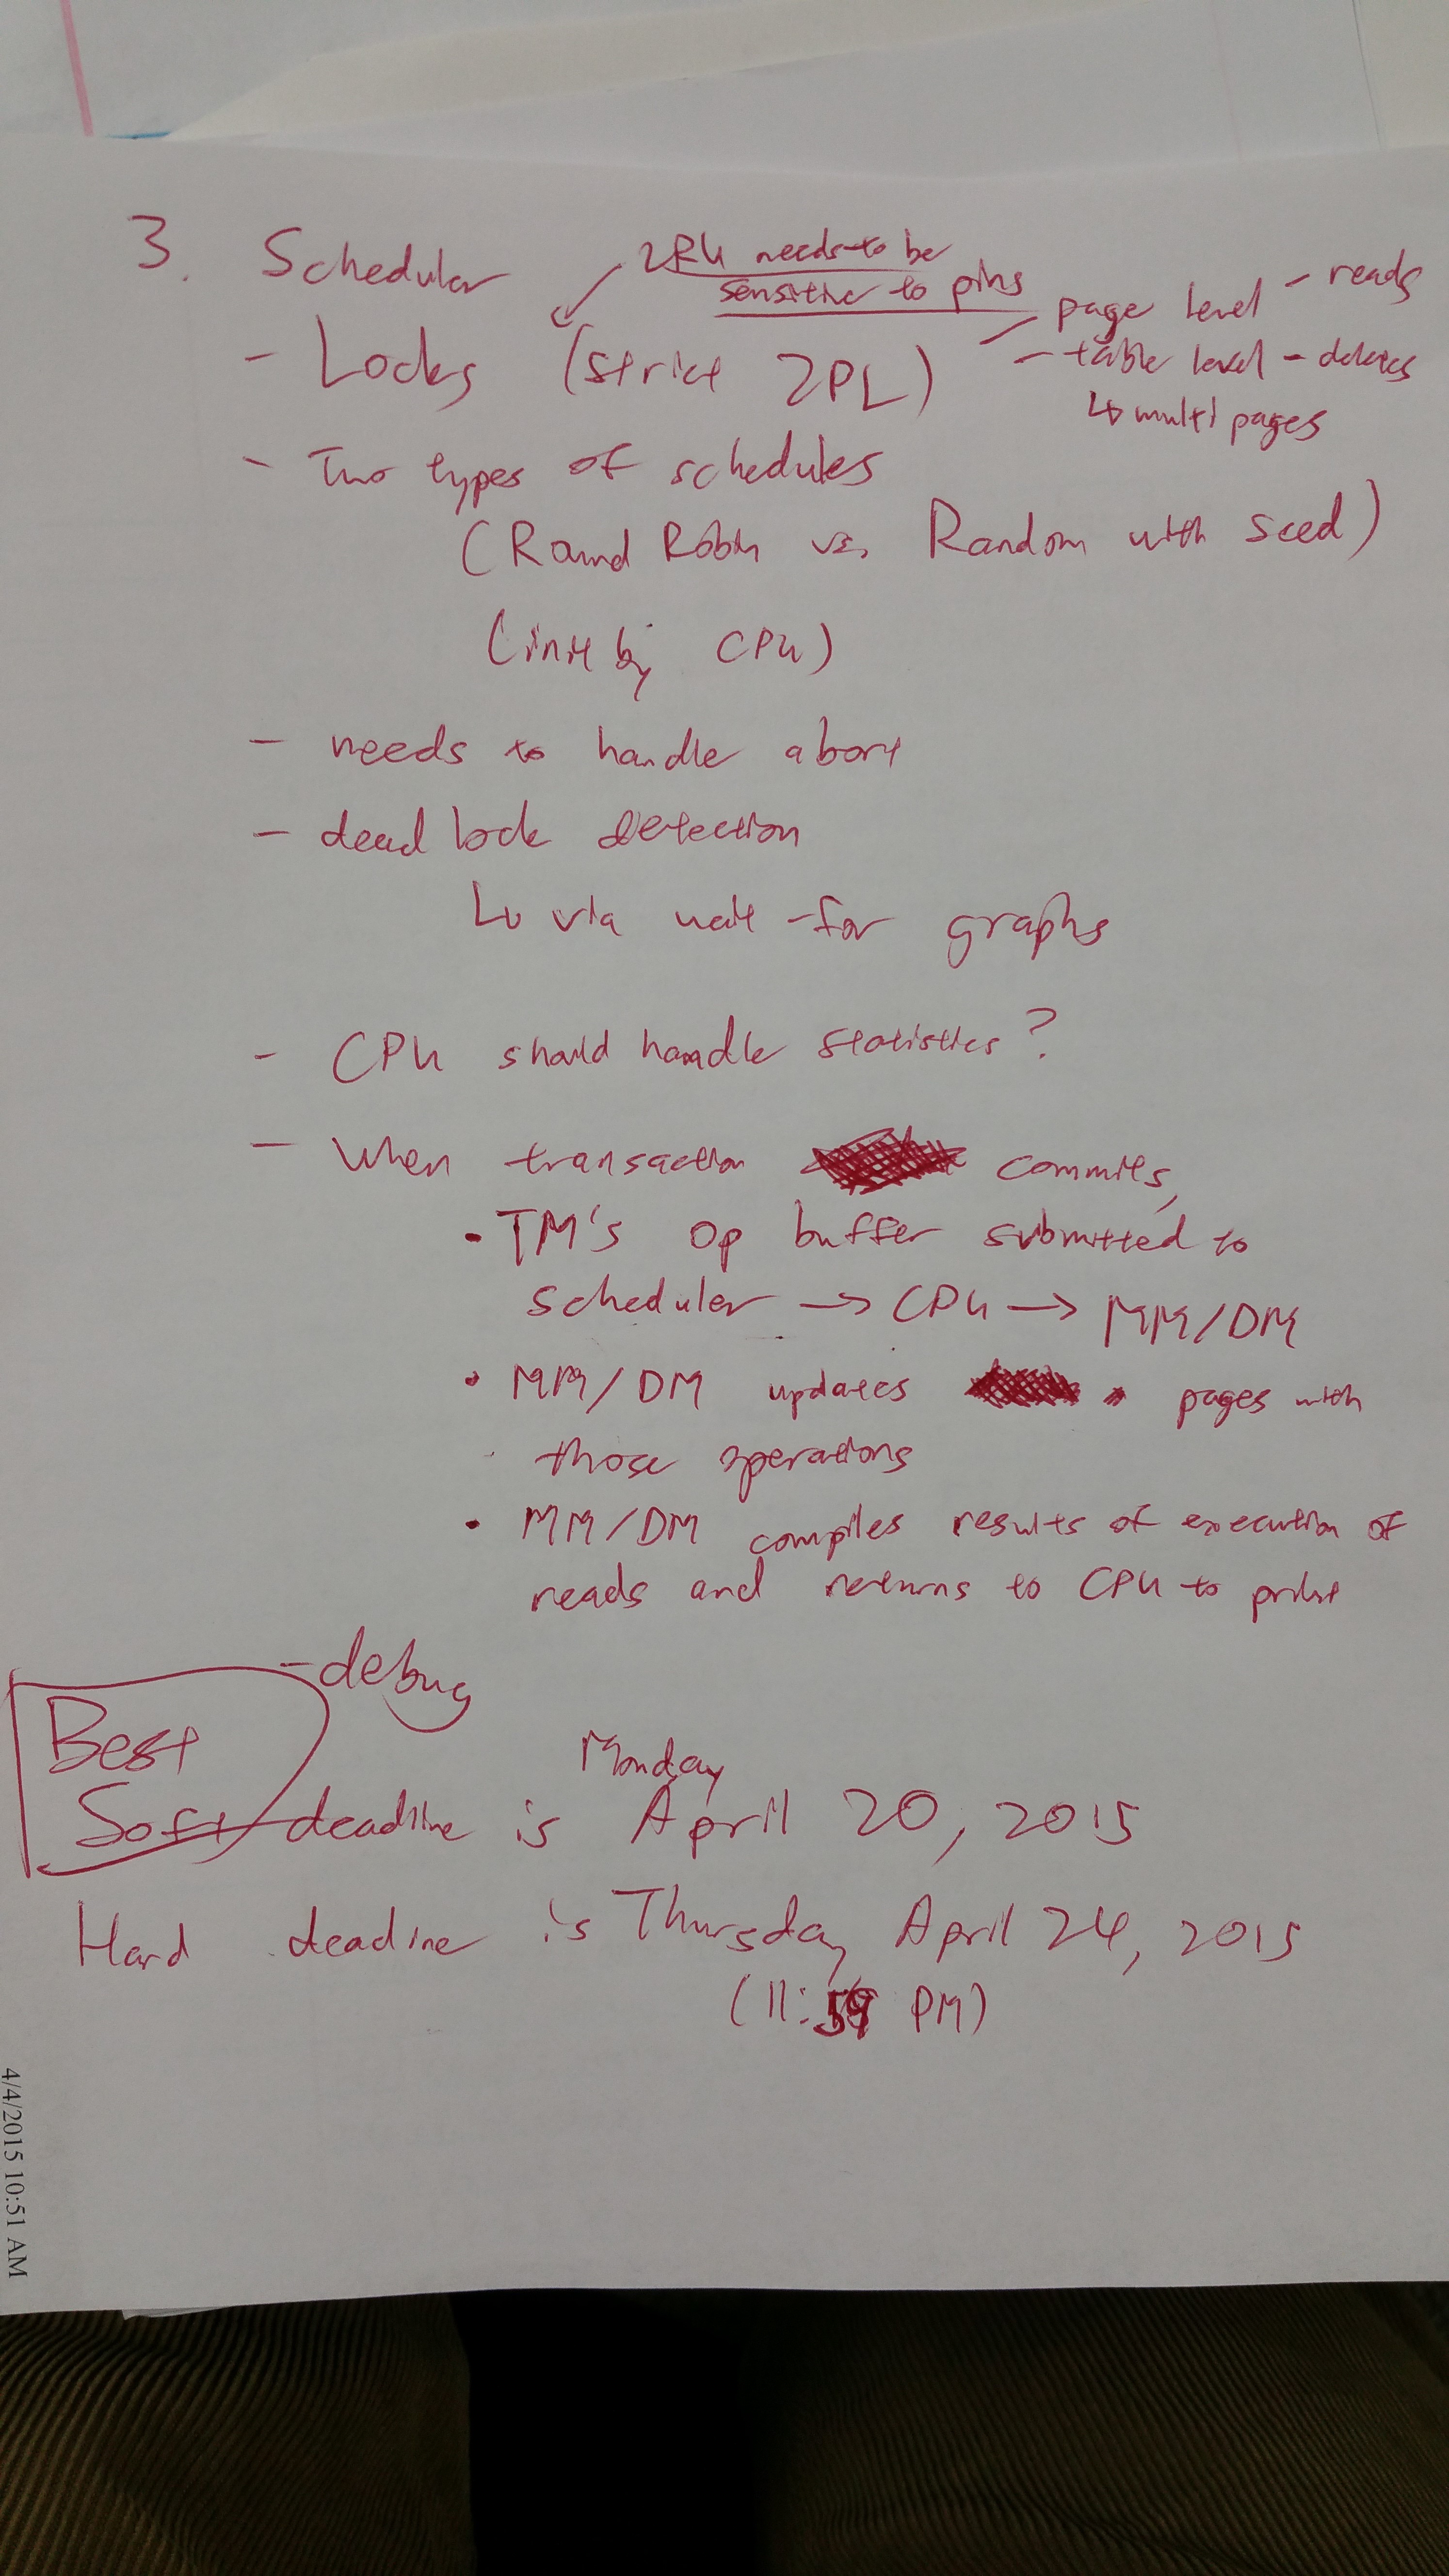 3. Schedular
LRU needs to be
sensitive to pins
- Locks (strict 2PL)
- page level - reads
- table level - deletes
↳ multi pages
- Two types of schedules
(Round Robin vs. Random with seed)
(init by CPU)
- needs to handle abort
- dead lock detection
↳ via wait-for graphs
- CPU should handle statistics?
- When transaction commits,
• TM's op buffer submitted to
scheduler → CPU → MM/DM
• MM/DM updates pages with
those operations
• MM/DM compiles results of execution of
reads and returns to CPU to print
- debug
Best
Monday
Soft deadline is April 20, 2015
Hard deadline is Thursday April 24, 2015
(11:59 PM)
4/4/2015 10:51 AM